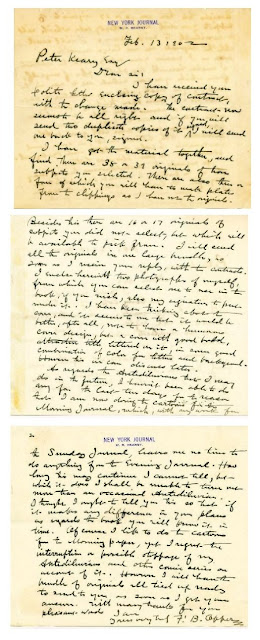 NEW YORK JOURNAL
W. R. HEARST.
Feb. 13 1902
Peter Keary Esq
Dear sir,
I have received your
polite letter enclosing copy of contract,
with the change made. The contract now
seems to be all right and if you will
send two duplicate copies of it I will send
one back to you signed.
I have got the material together, and
find there are 38 or 39 originals of
subjects you selected. Then are also three or
four of which you will have to make plates
from the clippings as I have not the originals.
Beside this there are 16 or 17 originals of
subjects you did not select, but which will
be available to pick from. I will send
all the originals in one large bundle, as
soon as I receive your reply, with the contracts.
I enclose herewith two photographs of myself,
from which you can select one to use in the
book, if you wish, also my signature to put
under it. I have been thinking about the
cover, and it seems to me that it would be
better, after all, not to have a humorous
cover design, but a cover with good bold,
attractive title lettered on it, in some good
combination of color for letters and background.
However this we can discuss later.
As regards the Antediluvians that I may
do in the future, I have not been able to do
any for the last ten days, for the reason
that I am now doing the cartoons for the
Morning Journal, which, with my work for
NEW YORK JOURNAL
W. R. HEARST.
the Sunday Journal, leaves me no time to
do anything for the Evening Journal. How
long this may continue I cannot tell, but
while it does I shall be unable to turn out
more than an occasional Antediluvian.
I thought I ought to tell you this so that if
it makes any difference in your plans
as regards the book you will know it in
time. Of course I like to do the cartoons
for the Morning paper, yet I regret the
interruption or possible stoppage of my
Antediluvians and other comic series on
account of it. However I will have the
bundle of originals all tied up ready
to send to you as soon as I get your
answer. With many thanks for your
pleasant words I am
Yours very truly F. B. Opper